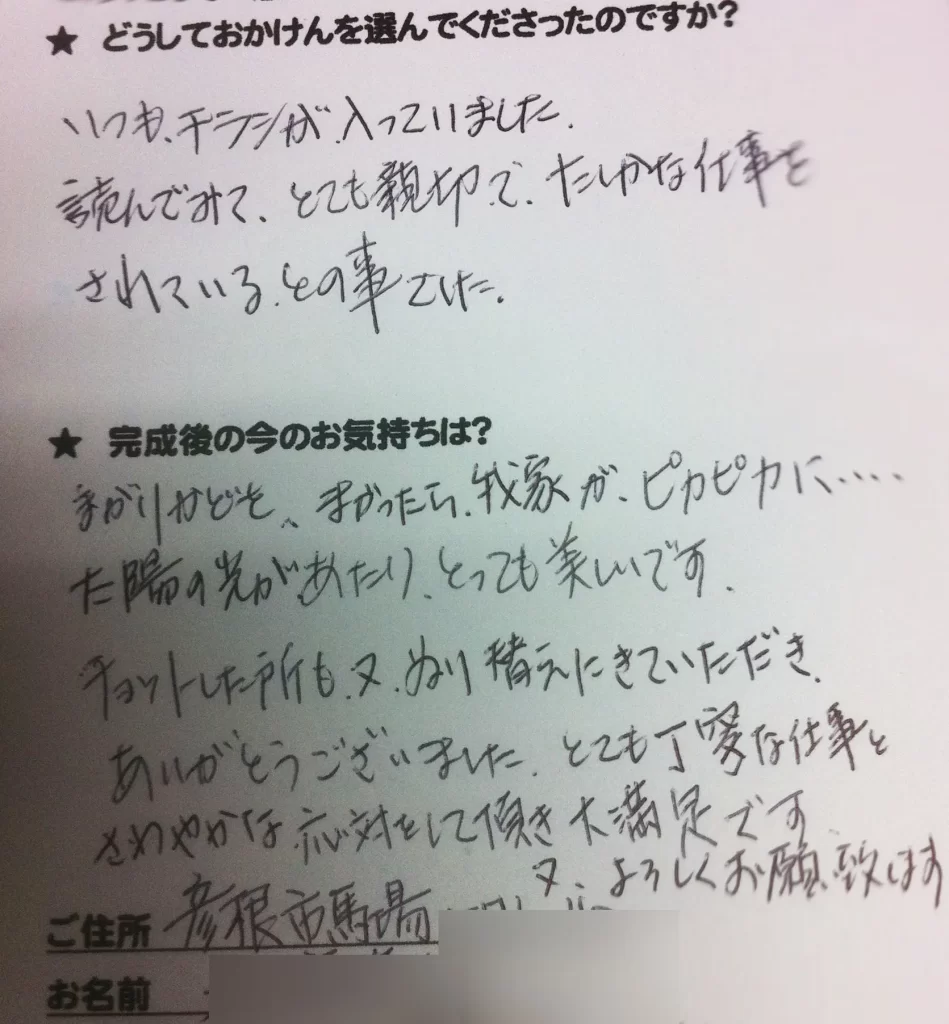 ★ どうしておかけんを選んでくださったのですか?
いつも、チラシが、入っていました.
読んでみて、とても親切、で、たしかな仕事を
されている、との事でした.
★ 完成後の今のお気持ちは?
まがりかどを、、まがったら、我家が、ピカピカに....
た陽の光が、あたり、とっても美しいです.
チョットした所も、又、ぬり替えにきていただき、
ありがとうございました、とても丁寧な仕事と
さわやかな応対をして頂き大満足です
又、よろしくお願い致します
ご住所 彦根市馬場
お名前